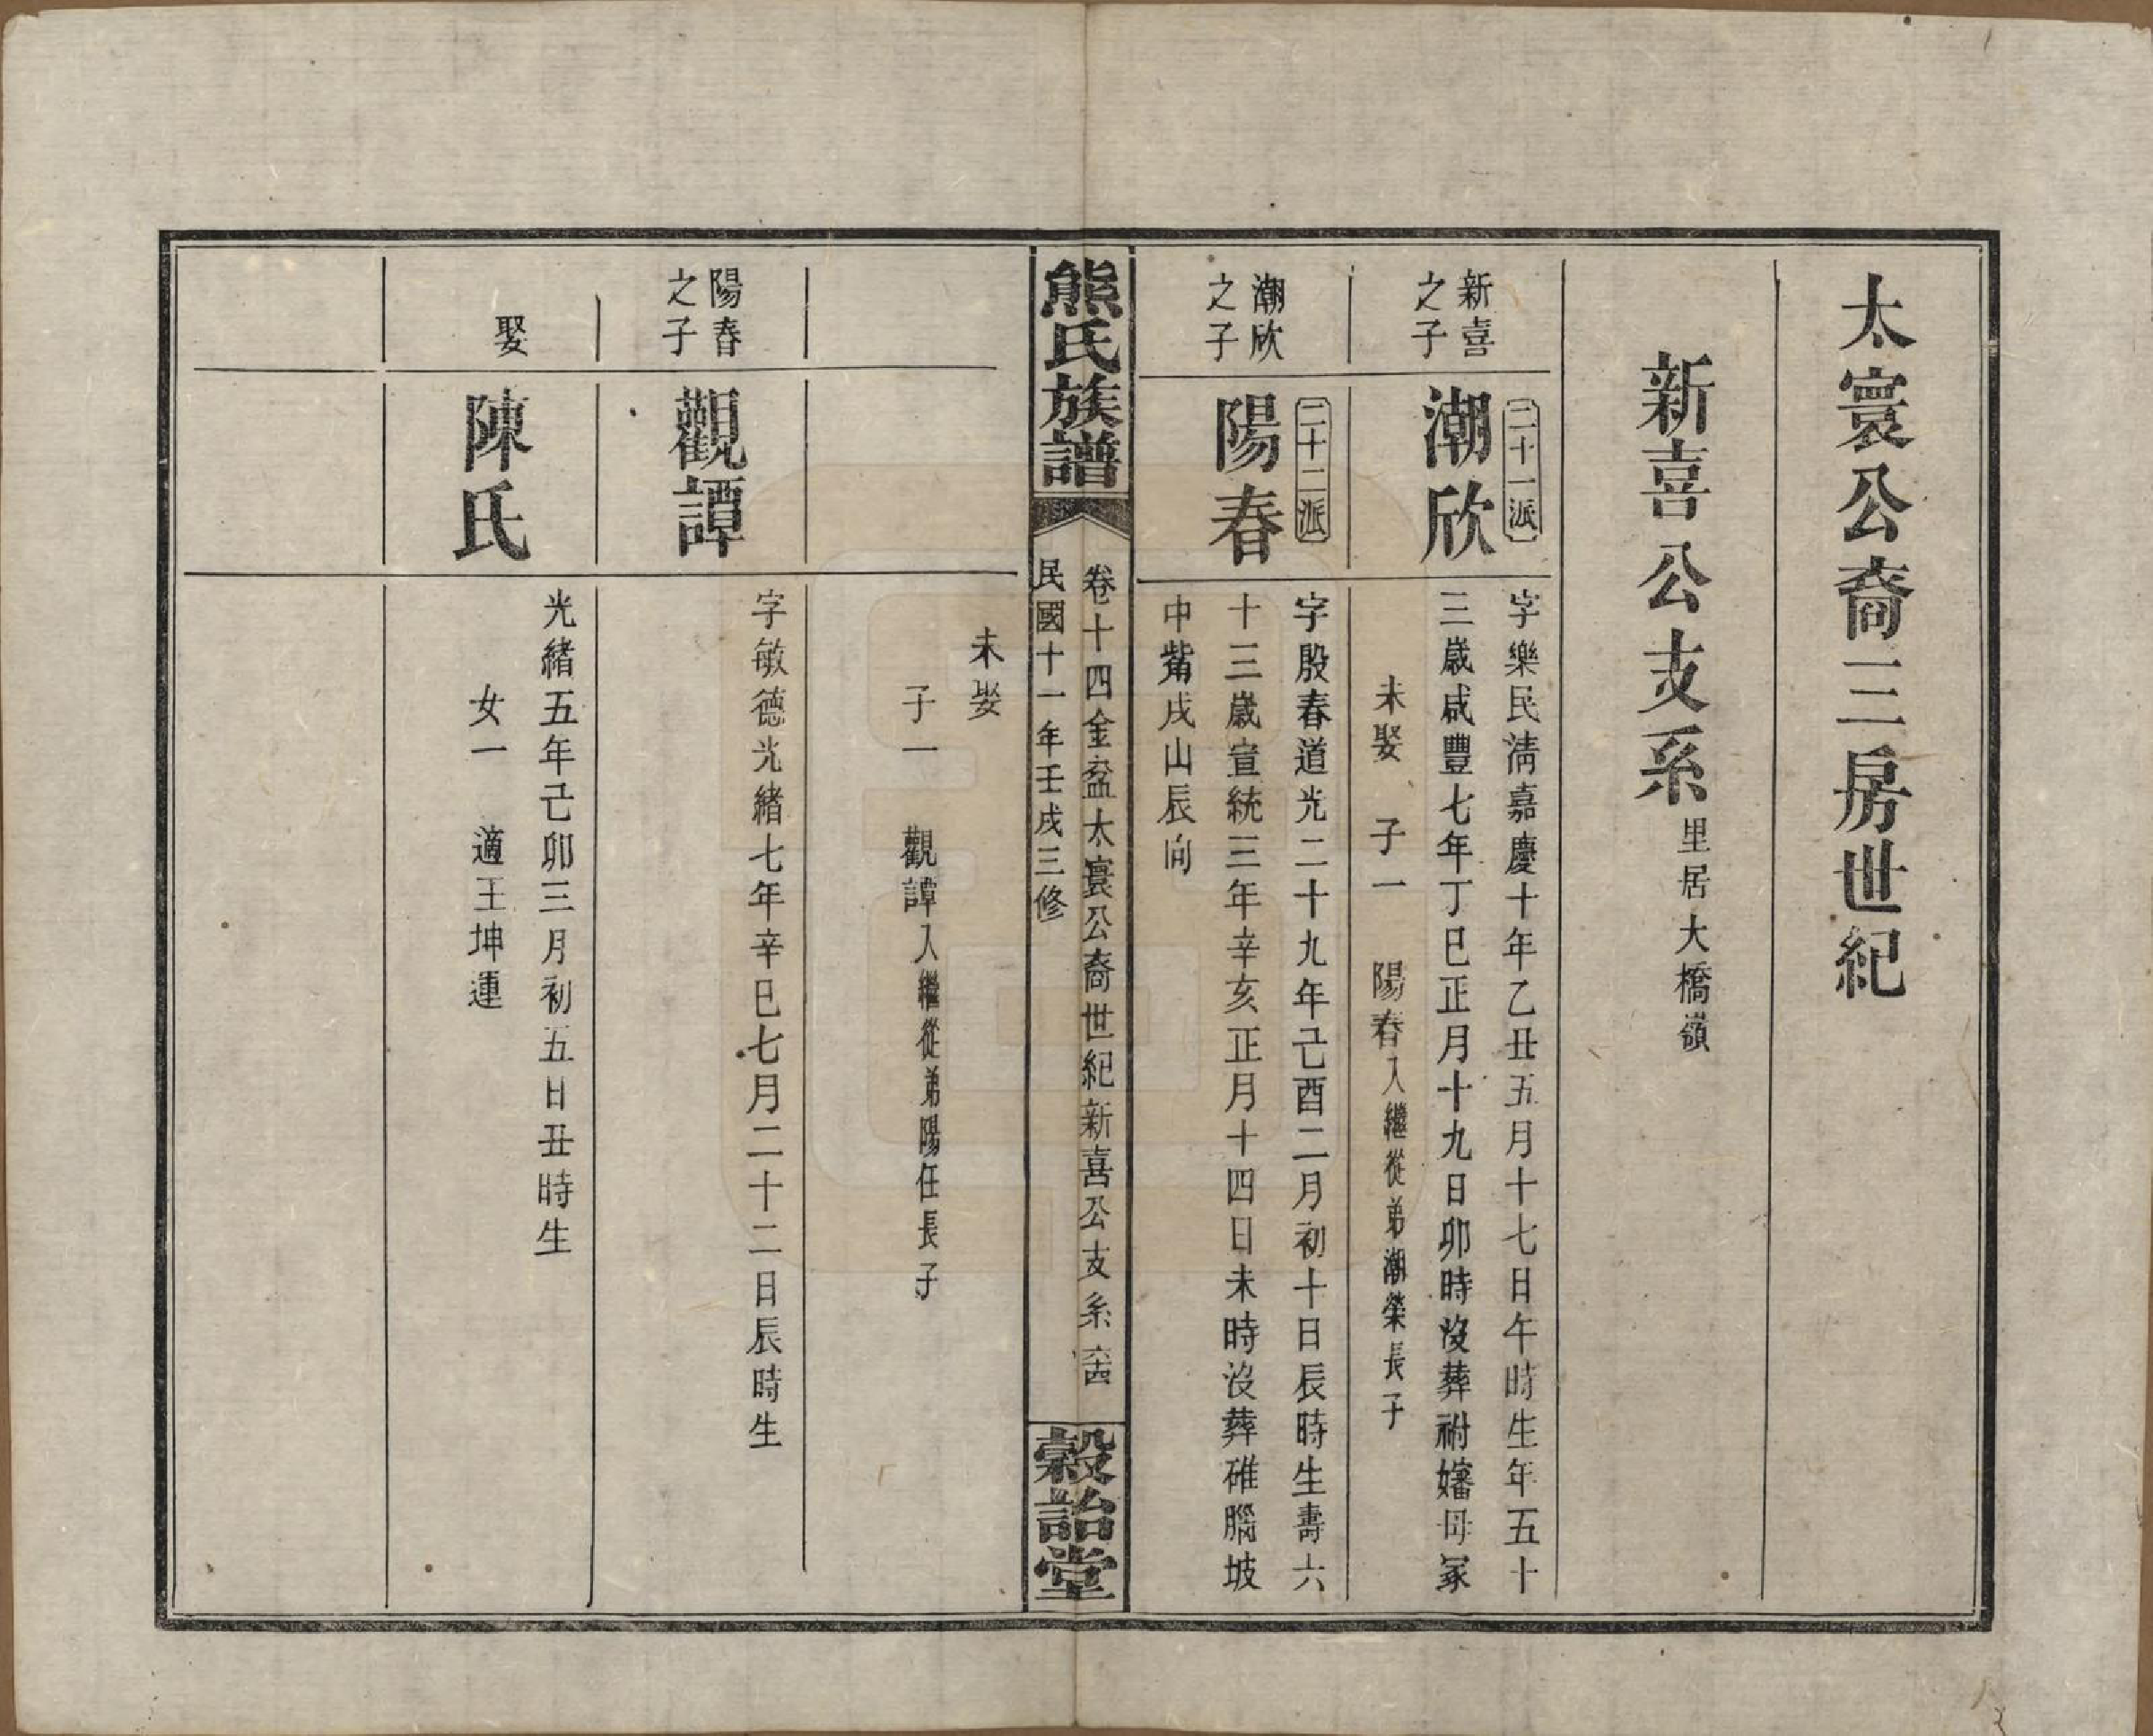 太寰公裔三房世紀
新喜公支系里居大橋嶺
新喜之子
二十一派
潮欣
字樂民淸嘉慶十年乙丑五月十七日午時生年五十
三歲咸豐七年丁巳正月十九日卯時沒葬祔嬸母冢
未娶 子一 陽春入繼從弟潮榮長子
潮欣之子
二十二派
陽春
字殷春道光二十九年己酉二月初十日辰時生壽六
十三歲宣統三年辛亥正月十四日未時沒葬碓腦坡
中觜戌山辰向
熊氏族譜
卷十四金盆太寰公裔世紀新喜公支系
民國十一年壬戌三修
穀詒堂
未娶
子一 觀譚入繼從弟陽任長子
陽春之子
觀譚
字敏德光緒七年辛巳七月二十二日辰時生
娶
陳氏
光緒五年己卯三月初五日丑時生
女一 適王坤連